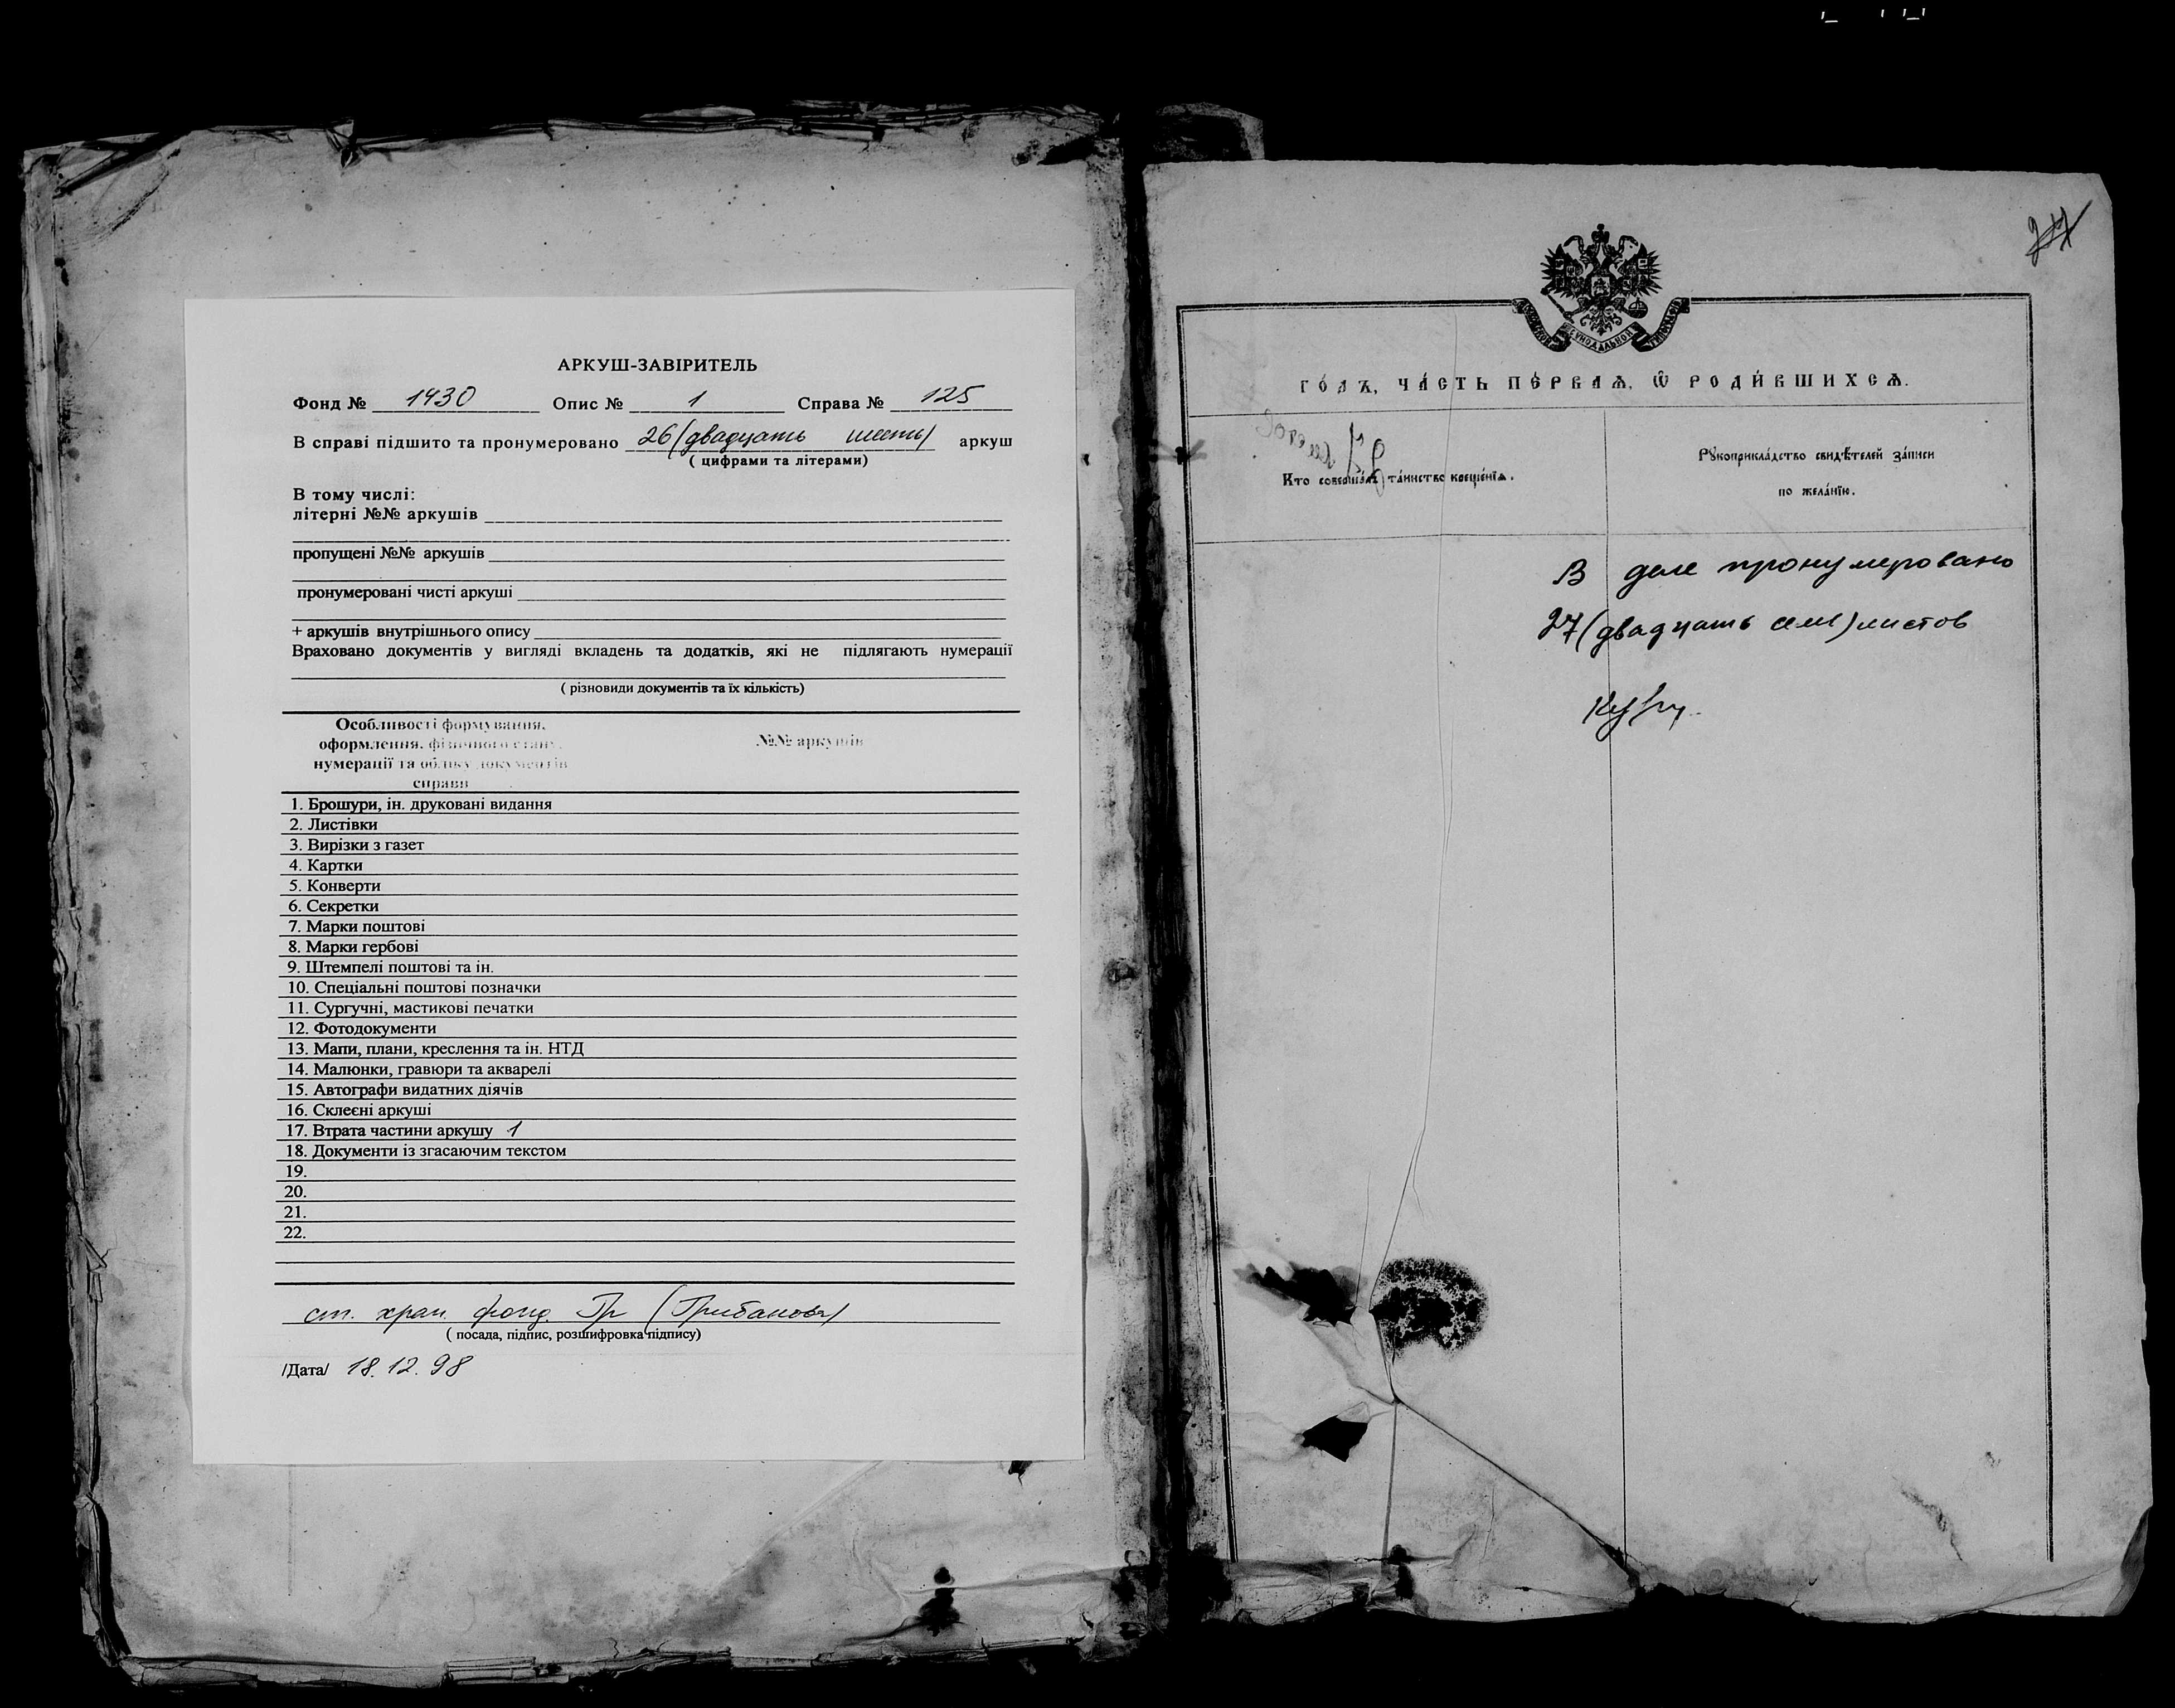 АРКУШ-ЗАВІРИТЕЛЬ
Фонд № 1930 Опис № 1 Справа № 125
В справі підшито та пронумеровано 26 (двадцать шесть) аркуш
( цифрами та літерами)
В тому числі:
літерні №№ аркушів
пропущені №№ аркушів
пронумеровані чисті аркуші
+ аркушів внутрішнього опису
Враховано документів у вигляді вкладень та додатків, які не підлягають нумерації
( різновиди документів та їх кількість)
Особливості формування, оформлення, фізичного стану, нумерації та обліку документів справи
№№ аркушів
1. Брошури, ін. друковані видання
2. Листівки
3. Вирізки з газет
4. Картки
5. Конверти
6. Секретки
7. Марки поштові
8. Марки гербові
9. Штемпелі поштові та ін.
10. Спеціальні поштові позначки
11. Сургучні, мастикові печатки
12. Фотодокументи
13. Мапи, плани, креслення та ін. НТД
14. Малюнки, гравюри та акварелі
15. Автографи видатних діячів
16. Склеєні аркуші
17. Втрата частини аркушу 1
18. Документи із згасаючим текстом
19.
20.
21.
22.
ст. хран. фонд. Гр (Грибанова)
( посада, підпис, розшифровка підпису)
/Дата/ 18.12.98
27
СѴНОДАЛЬНОЙ
ГО́ДЪ, ЧА́СТЬ ПЕ́РВАѦ, Ѿ РОДИ́ВШИХСѦ.
Кто соверша́лъ та́инство креще́нїѧ.
Рꙋкоприкла́дство свидѣ́телей за́писи
по жела́нїю.
В деле пронумеровано
27 (двадцать семь) листов